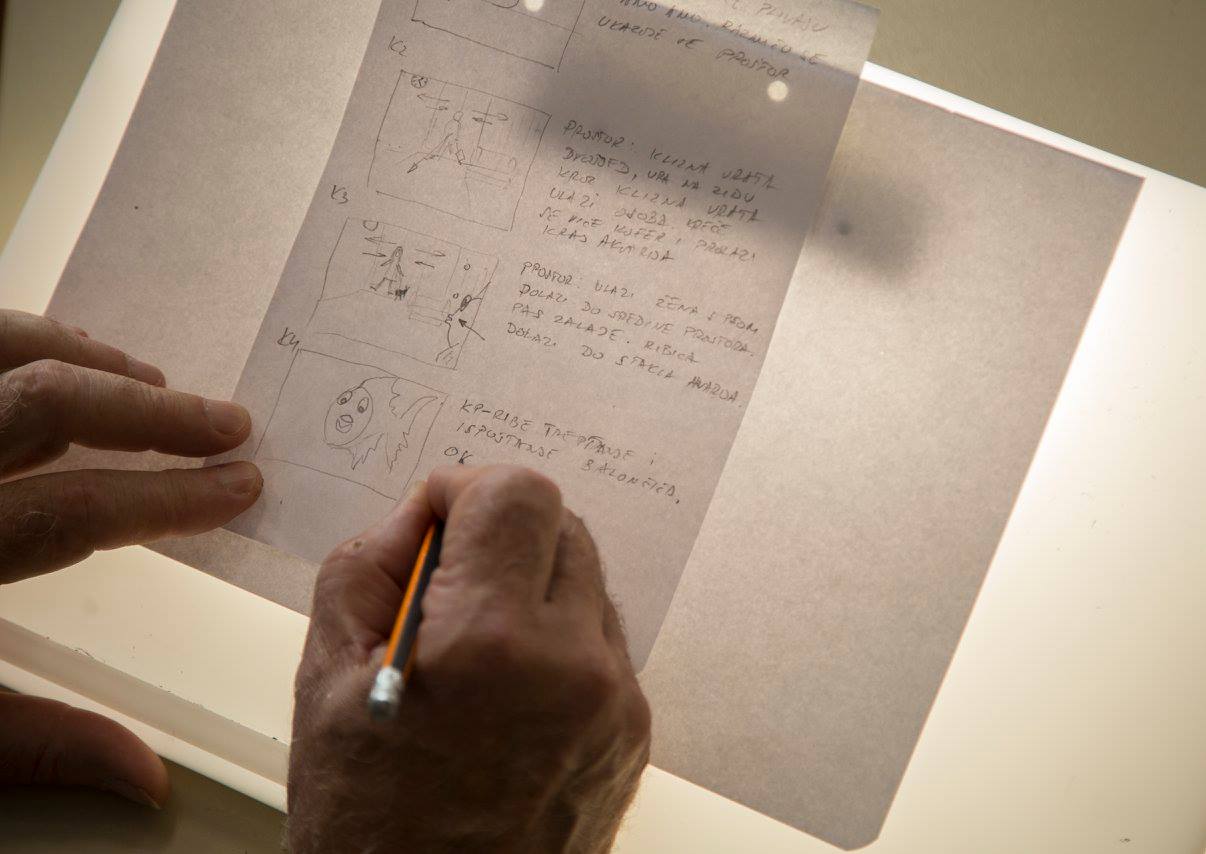 UKAZUJE SE PROSTOR
K2
PROSTOR: KLIZNA VRATA
DVOSJED, URA NA ZIDU
KROZ KLIZNA VRATA
ULAZI OSOBA KREĆE
KUFER I PROLAZI
KRAJ AKVARIJA
K3
PROSTOR: ULAZI ŽENA S PSOM
DOLAZI DO SREDINE PROSTORA.
PAS ZALAJE. RIBICA
DOLAZI DO STAKLA
K4
KP-RIBE TREPTANJE I
ISPUŠTANJE BALONČIĆA.
OK